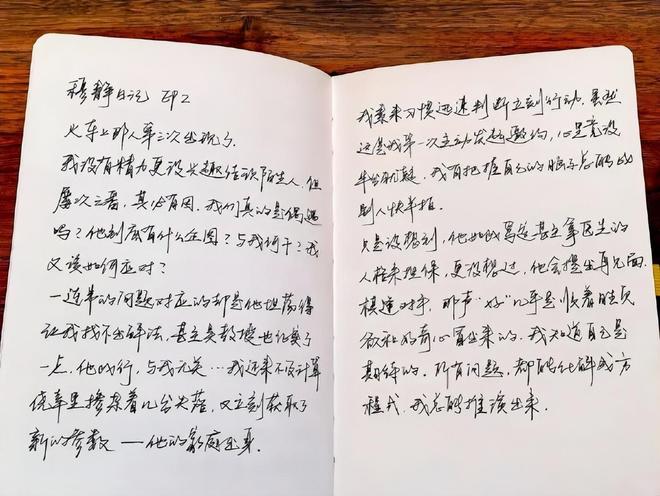 穆静日记 EP2
火车上那人第三次出现了.
我没有精力更没兴趣结识陌生人. 但
屡次三番, 其必有因. 我们真的是偶遇
吗? 他到底有什么企图? 与我何干? 我
又该如何应对?
一连串的问题对应的却是他坦荡得
让我找不出解法. 甚至奥数搜也
一点. 他的行, 与我无关… 我还来不及计算
侥幸里掺杂着几分失落, 又立刻获取了
新的参数 —— 他的家庭出身.
我素来习惯迅速判断立刻行动. 虽然
这是我第一次主动发起邀约, 心里竟没
半分犹疑. 我有把握自己的脑子总能比
别人快半拍.
只是没想到, 他如此笃定甚至拿医生的
人格来担保, 更没想过, 他会提出再见面.
棋逢对手. 那声“好”几乎是顺着胜负
欲和好奇心冒出来的. 我知道自己是
期待的. 所有问题, 都能化解成方
程式. 我总能推演出来.